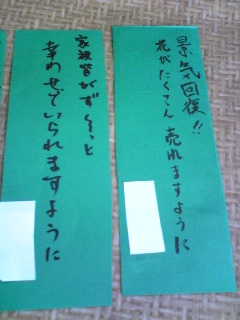 景気回復!!
花がたくさん売れますように
家族皆がず〜っと
幸わせでいられますように